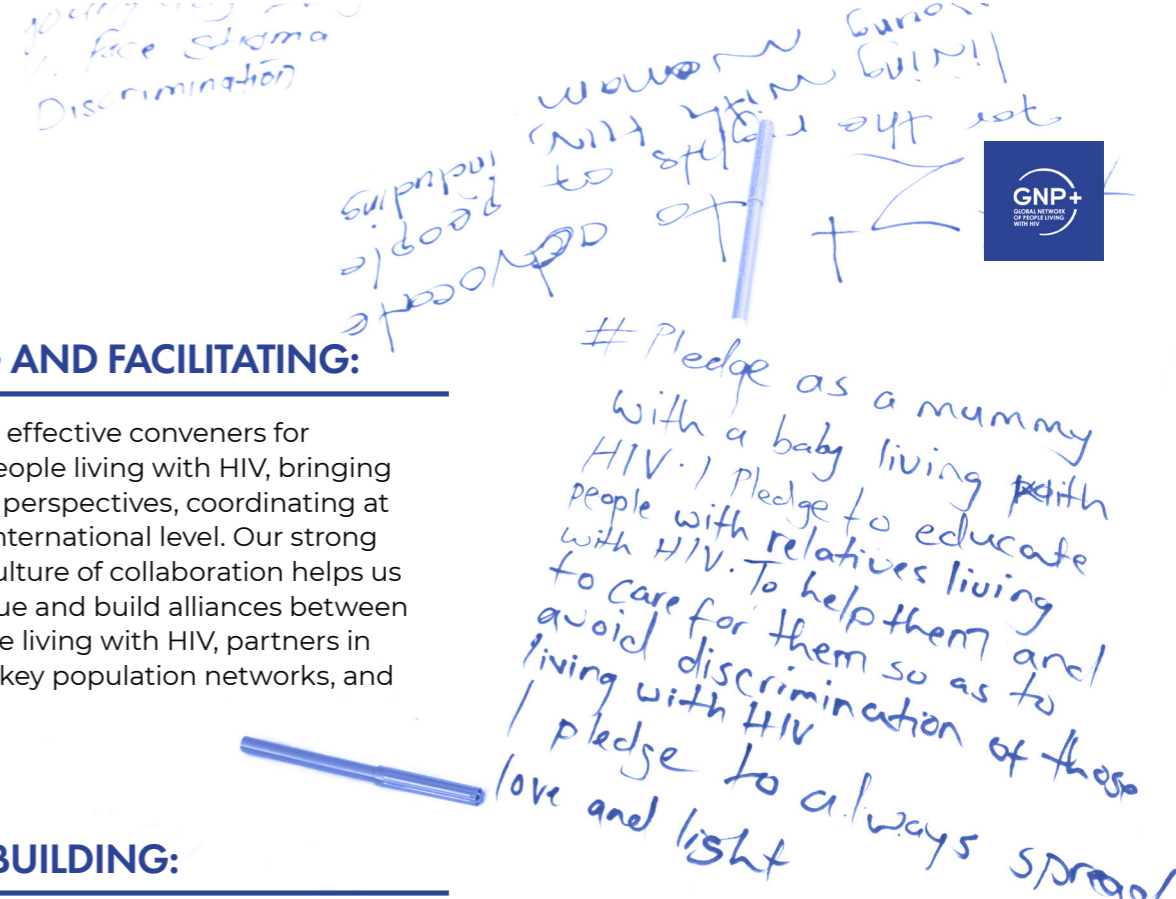 face stigma
Discrimination
to advocate
for the rights of people
living with HIV, including
young woman
GNP+
GLOBAL NETWORK
OF PEOPLE LIVING
WITH HIV
AND FACILITATING:
effective conveners for
eople living with HIV, bringing
perspectives, coordinating at
nternational level. Our strong
ulture of collaboration helps us
ue and build alliances between
e living with HIV, partners in
key population networks, and
BUILDING:
# Pledge as a mummy
with a baby living with
HIV. I Pledge to educate
people with relatives living
with HIV. To help them and
to care for them so as to
avoid discrimination of those
living with HIV
I pledge to always spread
love and light